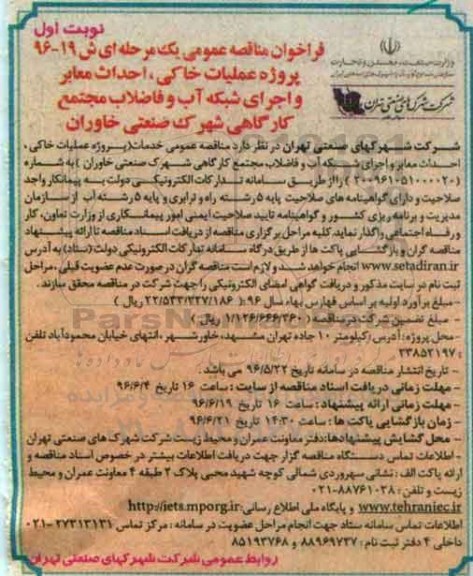 نوبت اول
وزارت صنعت، معدن و تجارت
شرکت شهرکهای صنعتی تهران
فراخوان مناقصه عمومی یک مرحله ای ش ۱۹-۹۶
پروژه عملیات خاکی، احداث معابر
و اجرای شبکه آب و فاضلاب مجتمع
کارگاهی شهرک صنعتی خاوران
شرکت شهرکهای صنعتی تهران در نظر دارد مناقصه عمومی خدمات (پروژه عملیات خاکی،
احداث معابر و اجرای شبکه آب و فاضلاب مجتمع کارگاهی شهرک صنعتی خاوران) به شماره
(۲۰۰۹۶۱۰۵۱۰۰۰۰۲۰) را از طریق سامانه تدارکات الکترونیکی دولت به پیمانکار واجد
صلاحیت و دارای گواهینامه های صلاحیت پایه ۵ رشته راه و ترابری و پایه ۵ رشته آب از سازمان
مدیریت و برنامه ریزی کشور و گواهینامه تایید صلاحیت ایمنی امور پیمانکاری از وزارت تعاون، کار
و رفاه اجتماعی واگذار نماید. کلیه مراحل برگزاری مناقصه از دریافت اسناد مناقصه تا ارائه پیشنهاد
مناقصه گران و بازگشایی پاکت ها از طریق درگاه سامانه تدارکات الکترونیکی دولت (ستاد) به آدرس
www.setadiran.ir انجام خواهد شد و لازم است مناقصه گران در صورت عدم عضویت قبلی، مراحل
ثبت نام در سایت مذکور و دریافت گواهی امضای الکترونیکی را جهت شرکت در مناقصه محقق سازند.
-مبلغ برآورد اولیه بر اساس فهارس بهاء سال ۹۶ (۲۲/۵۳۳/۲۲۷/۱۸۶ ریال)
- مبلغ تضمین شرکت در مناقصه (۱/۱۲۶/۶۶۶/۳۶۰ ریال)
-محل پروژه: آدرس: کیلومتر ۱۰ جاده تهران مشهد، خاورشهر، انتهای خیابان محمودآباد تلفن
: ۳۳۸۵۲۱۹۷
- تاریخ انتشار مناقصه در سامانه تاریخ ۹۶/۵/۲۲ می باشد.
- مهلت زمانی دریافت اسناد مناقصه از سایت: ساعت ۱۶ تاریخ ۹۶/۶/۴
- مهلت زمانی ارائه پیشنهاد: ساعت ۱۶ تاریخ ۹۶/۶/۱۹
- زمان بازگشایی پاکت ها: ساعت ۱۴:۳۰ تاریخ ۹۶/۶/۲۱
- محل گشایش پیشنهادها: دفتر معاونت عمران و محیط زیست شرکت شهرک های صنعتی تهران
- اطلاعات تماس دستگاه مناقصه گزار جهت دریافت اطلاعات بیشتر در خصوص اسناد مناقصه و
ارائه پاکت الف: نشانی سهروردی شمالی کوچه شهید محبی پلاک ۲ طبقه ۴ معاونت عمران و محیط
زیست و تلفن: ۸۸۷۶۱۰۳۸-۰۲۱
www.tehraniec.ir و پایگاه ملی اطلاع رسانی: http://iets.mporg.ir
اطلاعات تماس سامانه ستاد جهت انجام مراحل عضویت در سامانه: مرکز تماس ۲۷۳۱۳۱۳۱-۰۲۱
داخلی ۴ دفتر ثبت نام: ۸۸۹۶۹۷۳۷ و ۸۵۱۹۳۷۶۸
روابط عمومی شرکت شهرکهای صنعتی تهران